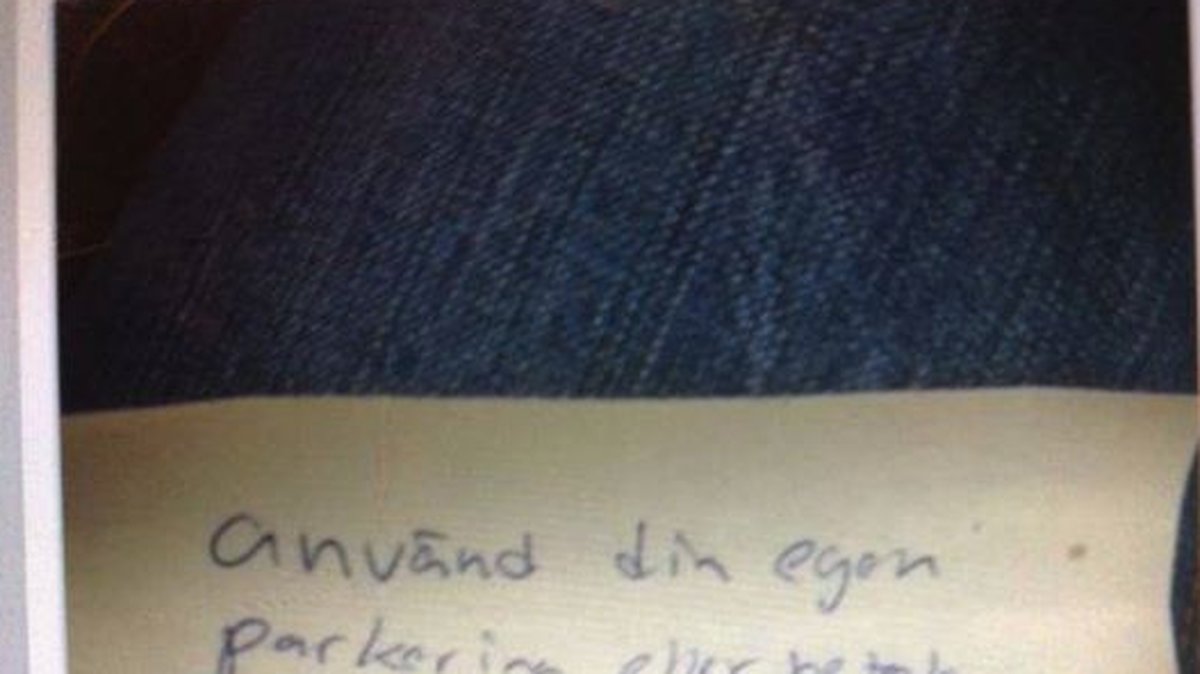 använd din egen
parkering eller